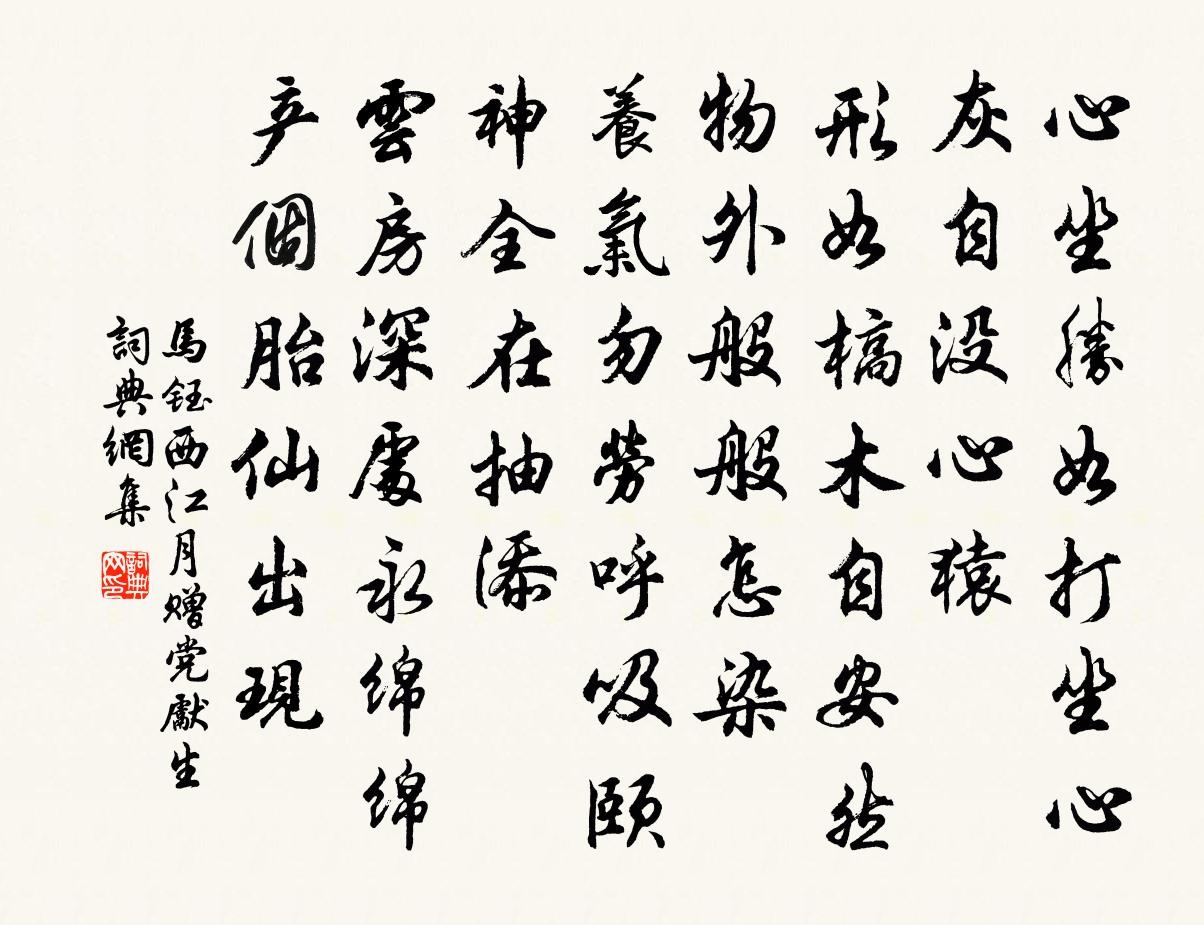 心坐勝如打坐心
灰自没心猿
形如槁木自安然
物外般般怎染
養氣勿勞呼吸頤
神全在抽添
雲房深處永绵绵
产個胎仙出現
馬鈺西江月赠党獻生
詞典網集
詞典网印